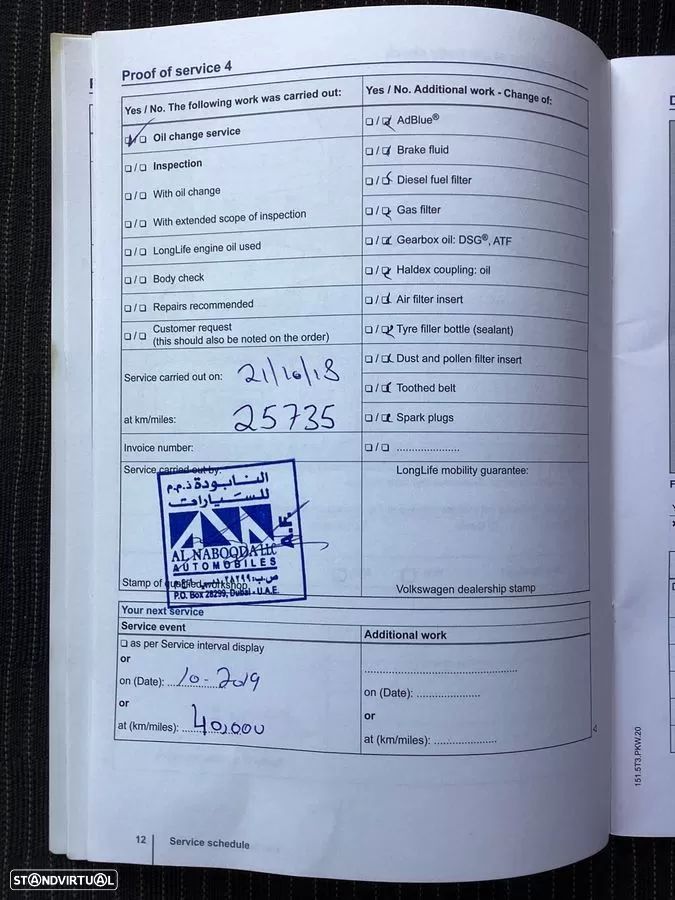 Proof of service 4
Yes / No. The following work was carried out:
☑ / ☐ Oil change service
☐ / ☐ Inspection
☐ / ☐ With oil change
☐ / ☐ With extended scope of inspection
☐ / ☐ LongLife engine oil used
☐ / ☐ Body check
☐ / ☐ Repairs recommended
☐ / ☐ Customer request
(this should also be noted on the order)
Service carried out on: 21/10/18
at km/miles: 25735
Invoice number:
Service carried out by:
النابودة ذ.م.م
للسيارات
A.F.
AL NABOODA LLC
AUTOMOBILES
P.O. Box 28299, Dubai - U.A.E.
Stamp of qualified workshop
Yes / No. Additional work - Change of:
☐ / ☑ AdBlue®
☐ / ☑ Brake fluid
☐ / ☑ Diesel fuel filter
☐ / ☑ Gas filter
☐ / ☑ Gearbox oil: DSG®, ATF
☐ / ☑ Haldex coupling: oil
☐ / ☑ Air filter insert
☐ / ☑ Tyre filler bottle (sealant)
☐ / ☑ Dust and pollen filter insert
☐ / ☑ Toothed belt
☐ / ☑ Spark plugs
☐ / ☐ .....................
LongLife mobility guarantee:
Volkswagen dealership stamp
Your next service
Service event
☐ as per Service interval display
or
on (Date): 10-2019
or
at (km/miles): 40,000
Additional work
..................................................
on (Date): .....................
or
at (km/miles): .....................
12
Service schedule
151.5T3.PKW.20
STANDVIRTUAL